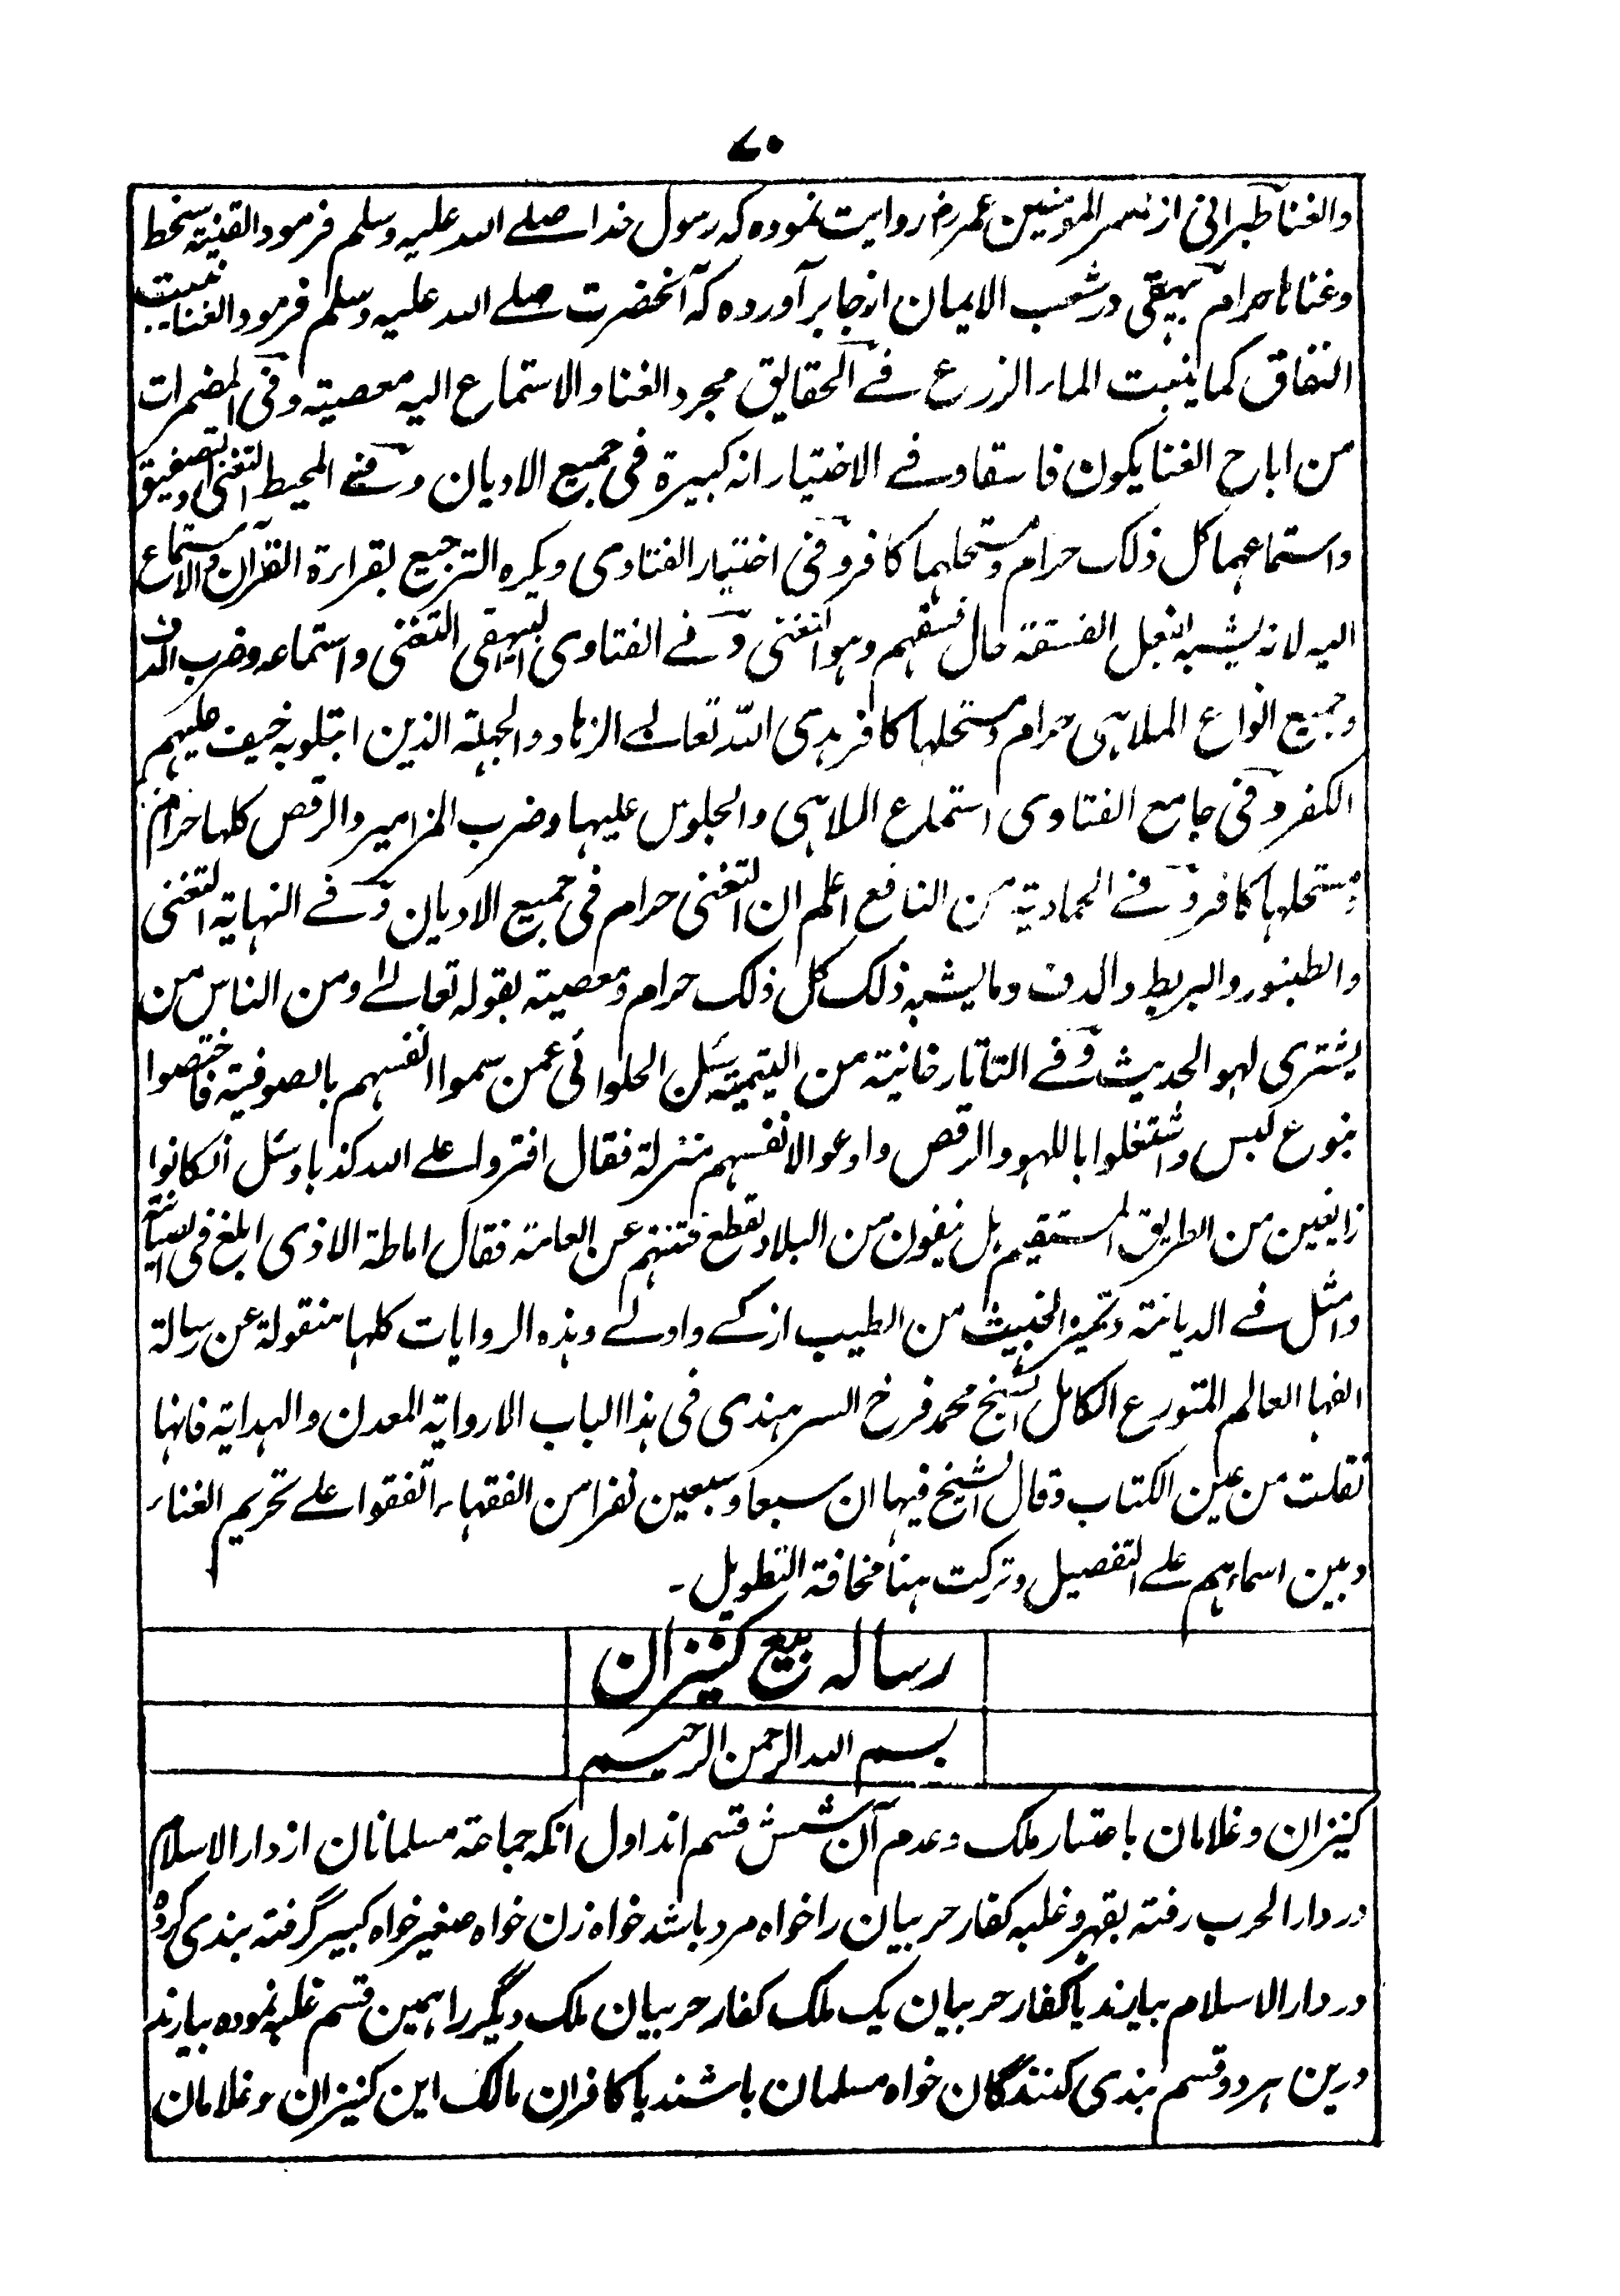 ۷۰
والغنا طبرانی از امیر المومنین عمر رض روایت نموده که رسول خدا صلے الله علیه وسلم فرمود القنیته سخط
وغنائها حرام بیهقی در شعب الایمان از جابر آورده که آنحضرت صلے الله علیه وسلم فرمود الغنا ینبت
النفاق کما ینبت الماء الزرع فے الحقایق مجرد الغنا والاستماع الیه معصیته وفی المضمرات
من اباح الغنا یکون فاسقا وفے الاختیار انه کبیرة فی جمیع الادیان وفے المحیط التغنی والتصفیق
واستماعهما کل ذلک حرام ومستحلهما کافر وفی اختیار الفتاوی ویکره الترجیع بقراءة القرآن والاستماع
الیه لانه یشبه بفعل الفسقة حال فسقهم وهو التغنی وفے الفتاوی البیهقی التغنی واستماعه وضرب الدف
وجمیع انواع الملاهی حرام ومستحلها کافر هدی الله تعالے الزهاد والجهلة الذین ابتلوبه خیف علیهم
الکفر وفی جامع الفتاوی استماع الملاهی والجلوس علیها وضرب المزامیر والرقص کلها حرام
ومستحلها کافر وفے الحمادیة من النافع اعلم ان التغنی حرام فی جمیع الادیان وفے النهایة التغنی
والطنبور والبربط والدف وما یشبه ذلک کل ذلک حرام ومعصیته بقوله تعالےٰ ومن الناس من
یشتری لهو الحدیث وفے التاتارخانیة من الیتیمیة سئل الحلوائی عمن سموا انفسهم بالصوفیة فاختصوا
بنوع لبس واشتغلوا باللهو والرقص وادعوا لانفسهم منزلة فقال افتروا علے الله کذبا وسئل انکانوا
زایغین من الطریق المستقیم هل ینفون من البلاد لقطع فتنتهم عن العامة فقال اماطة الاذی ابلغ فی الصیانة
وامثل فے الدیانة وتمیز الخبیث من الطیب ازکے واولے وهذه الروایات کلها منقولة عن رسالة
الفها العالم المتورع الکامل الشیخ محمد فرخ السرهندی فی هذا الباب الا روایة المعدن والهدایة فانها
نقلت من عین الکتاب وقال الشیخ فیها ان سبعا وسبعین نفرا من الفقهاء اتفقوا علے تحریم الغناء
وبین اسماءهم علے التفصیل وترکت هنا مخافة التطویل۔
رساله بیع کنیزان
بسم الله الرحمن الرحیم
کنیزان وغلامان باعتبار ملک وعدم آن شش قسم اند اول آنکه جماعة مسلمانان از دار الاسلام
در دار الحرب رفته بقهر وغلبه کفار حربیان را خواه مرد باشد خواه زن خواه صغیر خواه کبیر گرفته بندی کرده
در دار الاسلام بیارند یا کفار حربیان یک ملک کفار حربیان ملک دیگر را همین قسم غلبه نموده بیارند
درین هر دو قسم بندی کنندگان خواه مسلمان باشند یا کافران مالک این کنیزان وغلامان